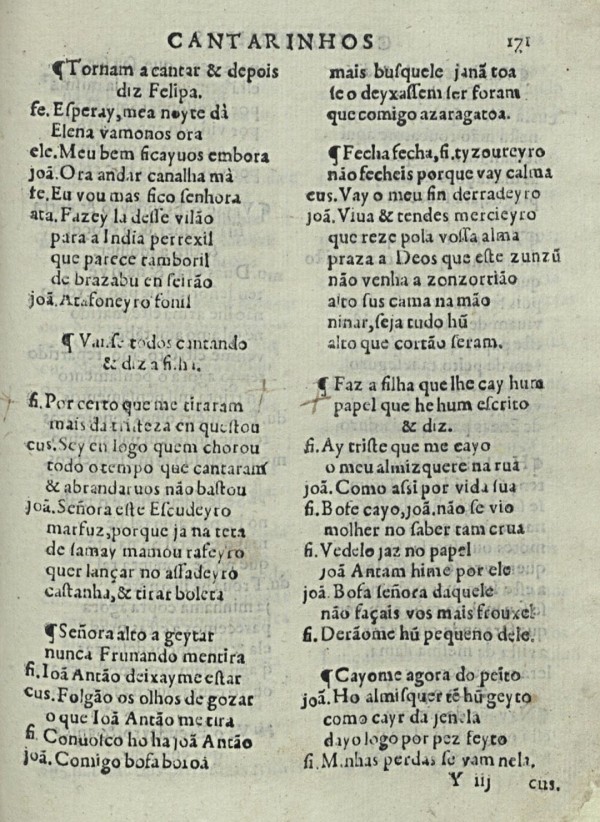 CANTARINHOS 171
¶Tornam a cantar & depois
diz Felipa.
fe. Eſperay, mea noyte dà
Elena vamonos ora
ele. Meu bem ficayuos embora
joã. Ora andar canalha mà
fe. Eu vou mas fico ſenhora
ata. Fazey la deſſe vilão
para a India perrexil
que parece tamboril
de brazabu en ſeirão
joã. Atafoneyro fonil
¶ Vanſe todos cantando
& diz a filha.
fi. Por certo que me tiraram
mais da triſteza en queſtou
cus. Sey en logo quem chorou
todo o tempo que cantaram
& abrandaruos não baſtou
joã. Señora eſte Eſcudeyro
marfuz, porque ja na teta
de ſamay mamou rafeyro
quer lançar no aſſadeyro
caſtanha, & tirar boleta
¶Señora alto a geytar
nunca Frunando mentira
fi. Ioã Antão deixay me eſtar
cus. Folgão os olhos de gozar
o que Ioã Antão me tira
fi. Conuoſco ho ha joã Antão
joã. Comigo bofa boroà
mais buſquele janã toa
ſe o deyxaſſem ſer foram
que comigo azaragatoa.
¶Fecha fecha, fi. tyzoureyro
não fecheis porque vay calma
cus. Vay o meu fin derradeyro
joã. Viua & tendes mercieyro
que reze pola voſſa alma
praza a Deos que eſte zunzũ
não venha a zonzorrião
alto ſus cama na mão
ninar, ſeja tudo hũ
alto que cortão ſeram.
¶ Faz a filha que lhe cay hum
papel que he hum eſcrito
& diz.
fi. Ay triſte que me cayo
o meu almizquere na ruà
joã. Como aſſi por vida ſua
fi. Bofe cayo, joã. não ſe vio
molher no ſaber tam crua
fi. Vedelo jaz no papel
joã Antam hime por ele
joã. Bofa ſeñora daquele
não façais vos mais frouxel
fi. Derãome hũ pequeno dele.
¶Cayome agora do peito
joã. Ho almiſquer tẽ hũ geyto
como cayr da jenela
dayo logo por pez feyto
fi. Minhas perdas ſe vam nela.
Y iij cus.